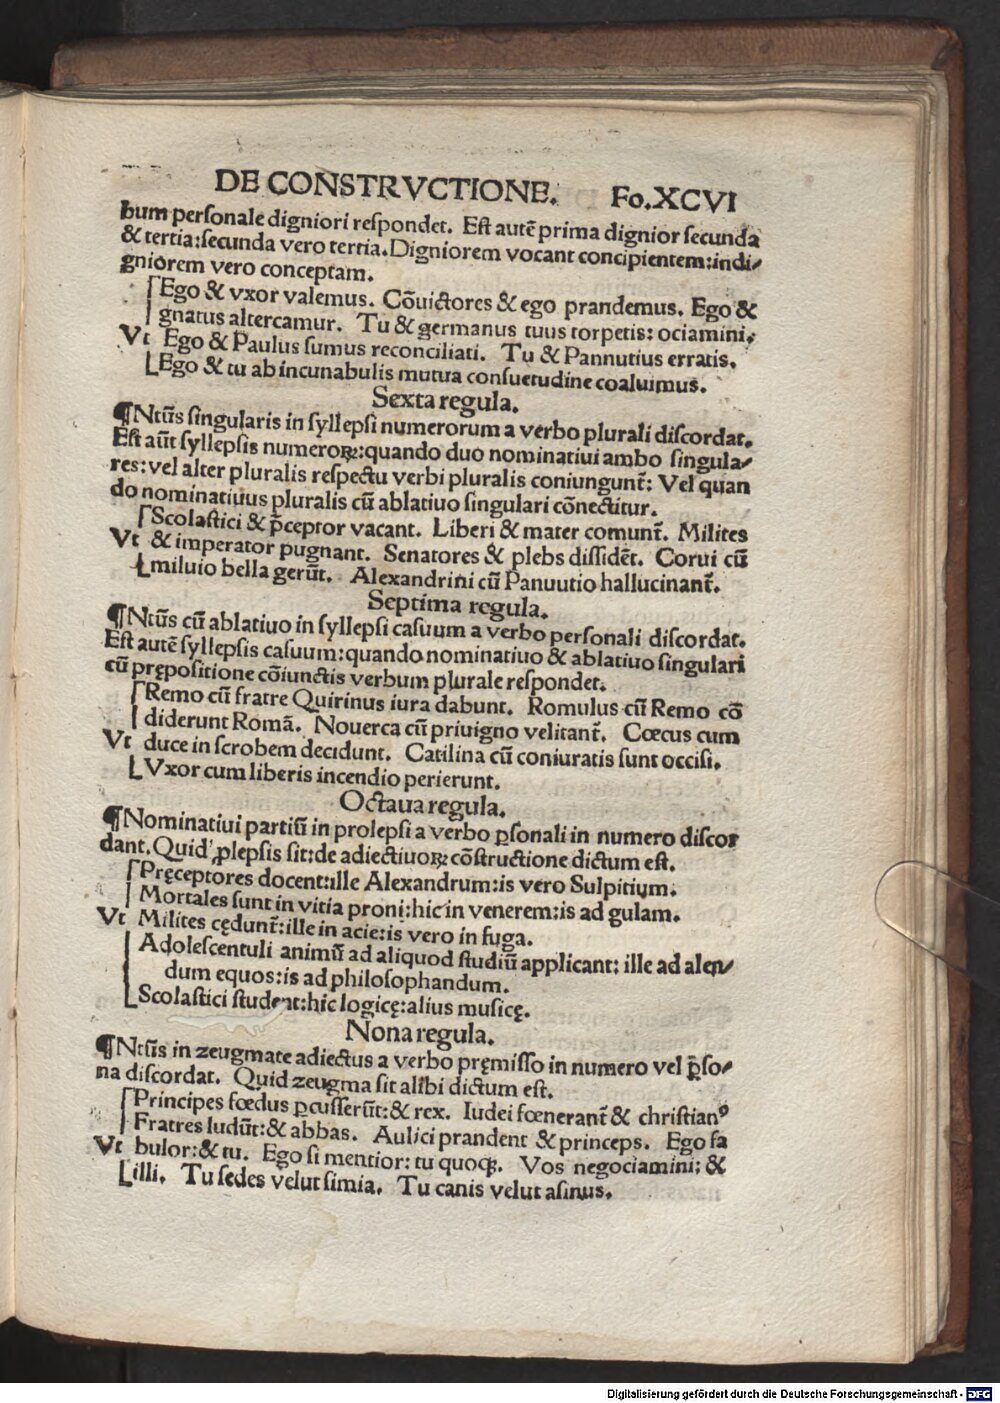 DE CONSTRVCTIONE. Fo.XCVI
bum personale digniori respondet. Est autē prima dignior secunda
& tertia:secunda vero tertia.Digniorem vocant concipientem:indi-
gniorem vero conceptam.
Ego & vxor valemus. Cōuictores & ego prandemus. Ego &
gnatus altercamur. Tu & germanus tuus torpetis: ociamini,
Vt Ego & Paulus sumus reconciliati. Tu & Pannutius erratis.
Ego & tu ab incunabulis mutua consuetudine coaluimus.
Sexta regula.
¶Ntūs singularis in syllepsi numerorum a verbo plurali discordat.
Est aūt syllepsis numeroꝝ:quando duo nominatiui ambo singula-
res:vel alter pluralis respectu verbi pluralis coniungunt̄: Vel quan
do nominatiuus pluralis cū ablatiuo singulari cōnectitur.
Scolastici & p̄ceptor vacant. Liberi & mater comunt̄. Milites
Vt & imperator pugnant. Senatores & plebs dissidēt. Corui cū
miluio bella gerūt. Alexandrini cū Panuutio hallucinant̄.
Septima regula.
¶Ntūs cū ablatiuo in syllepsi casuum a verbo personali discordat.
Est autē syllepsis casuum:quando nominatiuo & ablatiuo singulari
cū prępositione cōiunctis verbum plurale respondet.
Remo cū fratre Quirinus iura dabunt. Romulus cū Remo cō
diderunt Romā. Nouerca cū priuigno velitant̄. Cœcus cum
Vt duce in scrobem decidunt. Catilina cū coniuratis sunt occisi.
Vxor cum liberis incendio perierunt.
Octaua regula.
¶Nominatiui partiū in prolepsi a verbo ꝑsonali in numero discor
dant. Quid ꝓlepsis sit:de adiectiuoꝝ cōstructione dictum est.
Pręceptores docent:ille Alexandrum:is vero Sulpitium.
Mortales sunt in vitia proni:hic in venerem:is ad gulam.
Vt Milites cędunt̄:ille in acie:is vero in fuga.
Adolescentuli animū ad aliquod studiū applicant: ille ad alen-
dum equos:is ad philosophandum.
Scolastici student:hic logicę:alius musicę.
Nona regula.
¶Ntūs in zeugmate adiectus a verbo pręmisso in numero vel p̄so-
na discordat. Quid zeugma sit alibi dictum est.
Principes fœdus ꝑcusserūt:& rex. Iudei fœnerant̄ & christianꝰ
Fratres ludūt:& abbas. Aulici prandent & princeps. Ego fa
Vt bulor:& tu. Ego si mentior: tu quoqꝫ. Vos negociamini; &
illi. Tu sedes velut simia. Tu canis velut asinus.
Digitalisierung gefördert durch die Deutsche Forschungsgemeinschaft - DFG